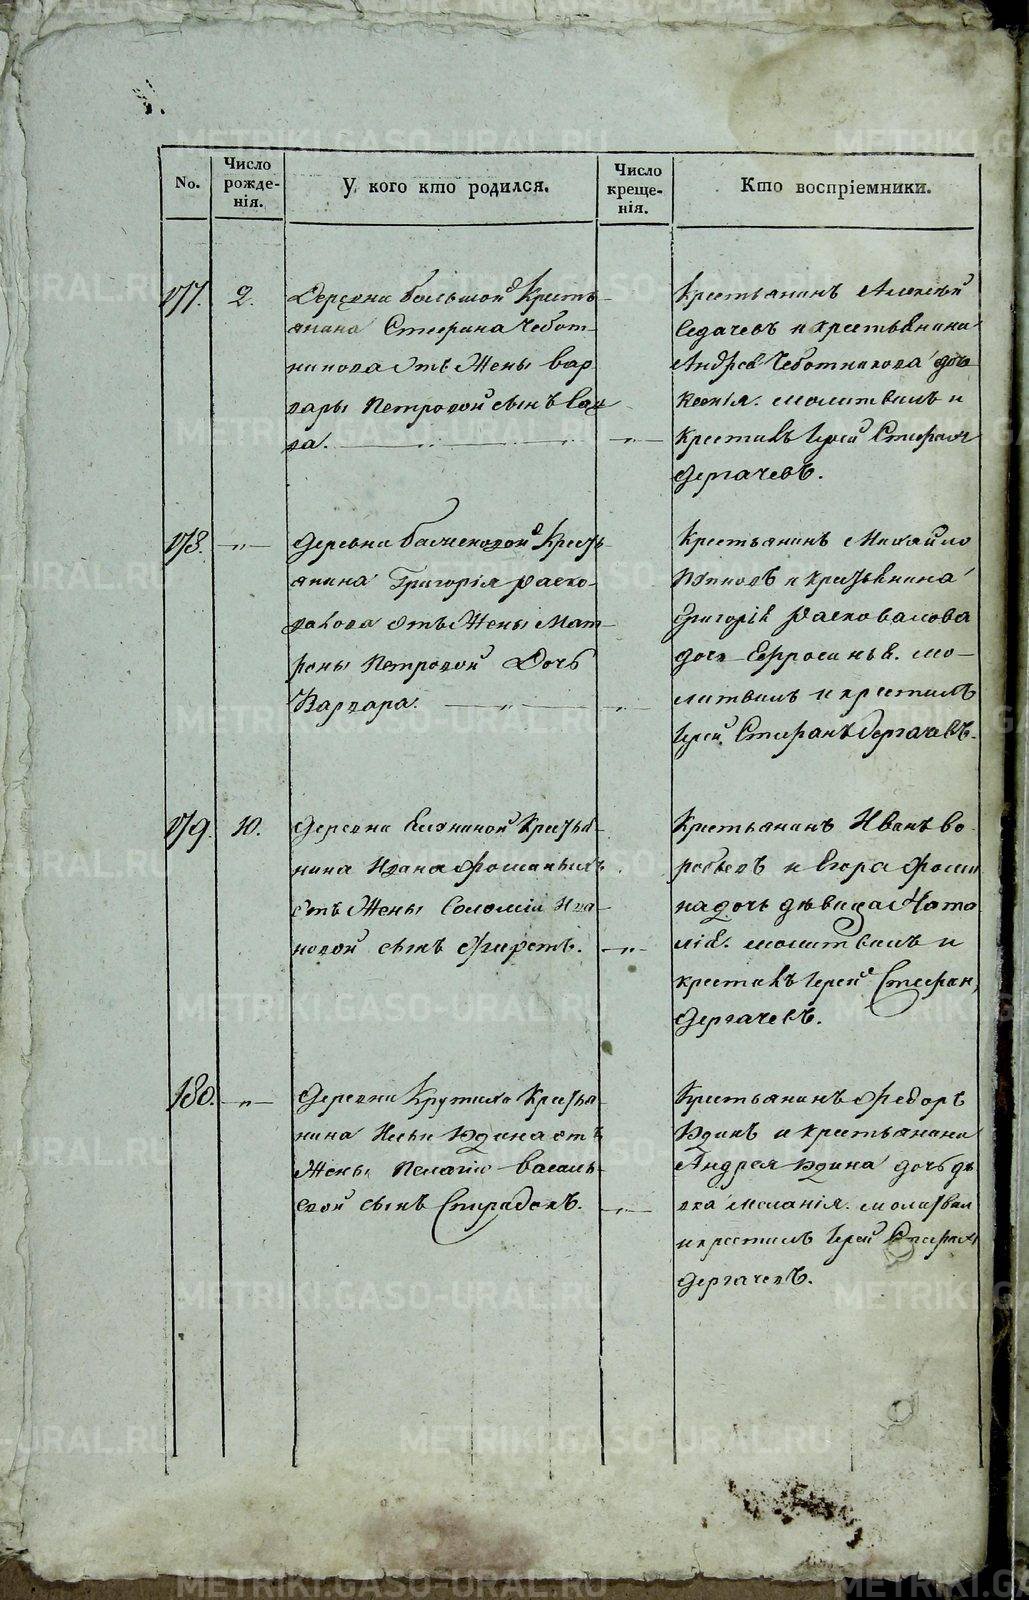 No.
Число рожде-нія.
У кого кто родился.
Число креще-нія.
Кто воспріемники.
177.
2.
Деревни большой Кресть-
янина Стефана Чебот-
никова отъ Жены Вар
вары Петровой сынъ Сав
ва.
Крестьянинъ Алексѣй
Седачевъ и крестьянина
Андрея Чеботникова дочь
Ксенія. молитвилъ и
крестилъ Іерей Стефанъ
Дергачевъ.
178.
Деревни Кресть
янина Григорія Раско-
валова отъ Жены Мат
роны Петровой Дочь
Варвара.
Крестьянинъ Михайло
и крестьянина
Григорія Расковалова
дочь Ефросинья. мо-
литвилъ и крестилъ
Іерей Стефанъ Дергачевъ.
179.
10.
Деревни Крестья-
нина Ивана Фоминыхъ
отъ Жены Соломіи Ива-
новой сынъ Фирстъ.
Крестьянинъ Иванъ Во
робьевъ и Егора Фоми
на дочь дѣвица Ната
лія. молитвилъ и
крестилъ Іерей Стефан
Дергачевъ.
180.
Деревни Крутиха Крестья
нина Ильи Юдина отъ
Жены Пелагіи Василь-
евой сынъ Спиридонъ.
Крестьянинъ Федоръ
Юдинъ и крестьянина
Андрея Юдина дочь дѣ
вка Меланія. молитвил
и крестилъ Іерей Стефанъ
Дергачевъ.
METRIKI.GASO-URAL.RU